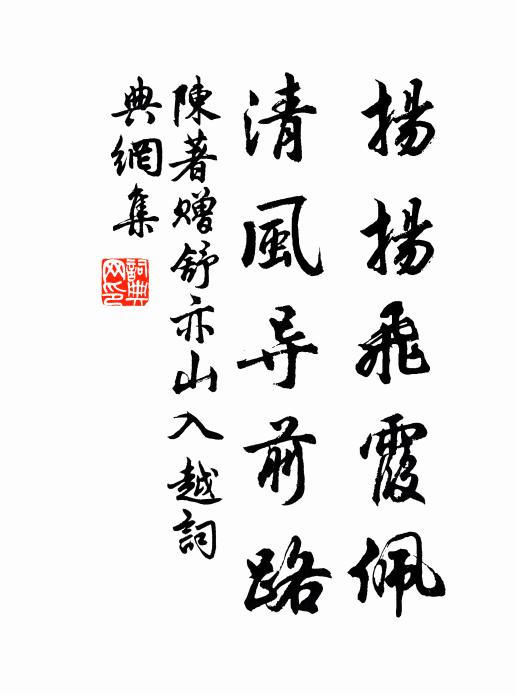 揚揚飛霞佩
清風导前路
陳著贈舒亦山入越詞
典網集
詞典网印